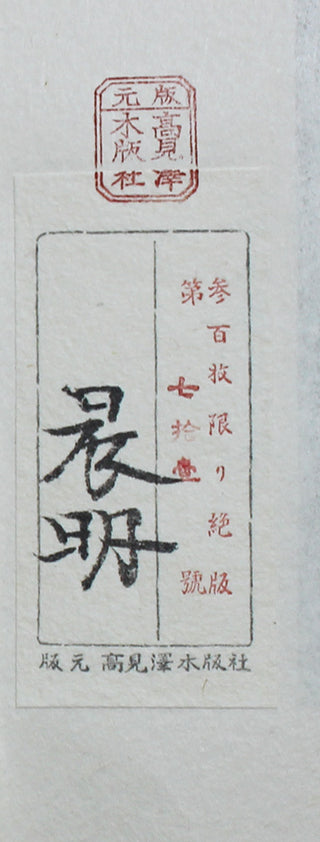 版元
高見澤
木版社
参百枚限り絶版
第七拾壹號
晨明
版元 高見澤木版社